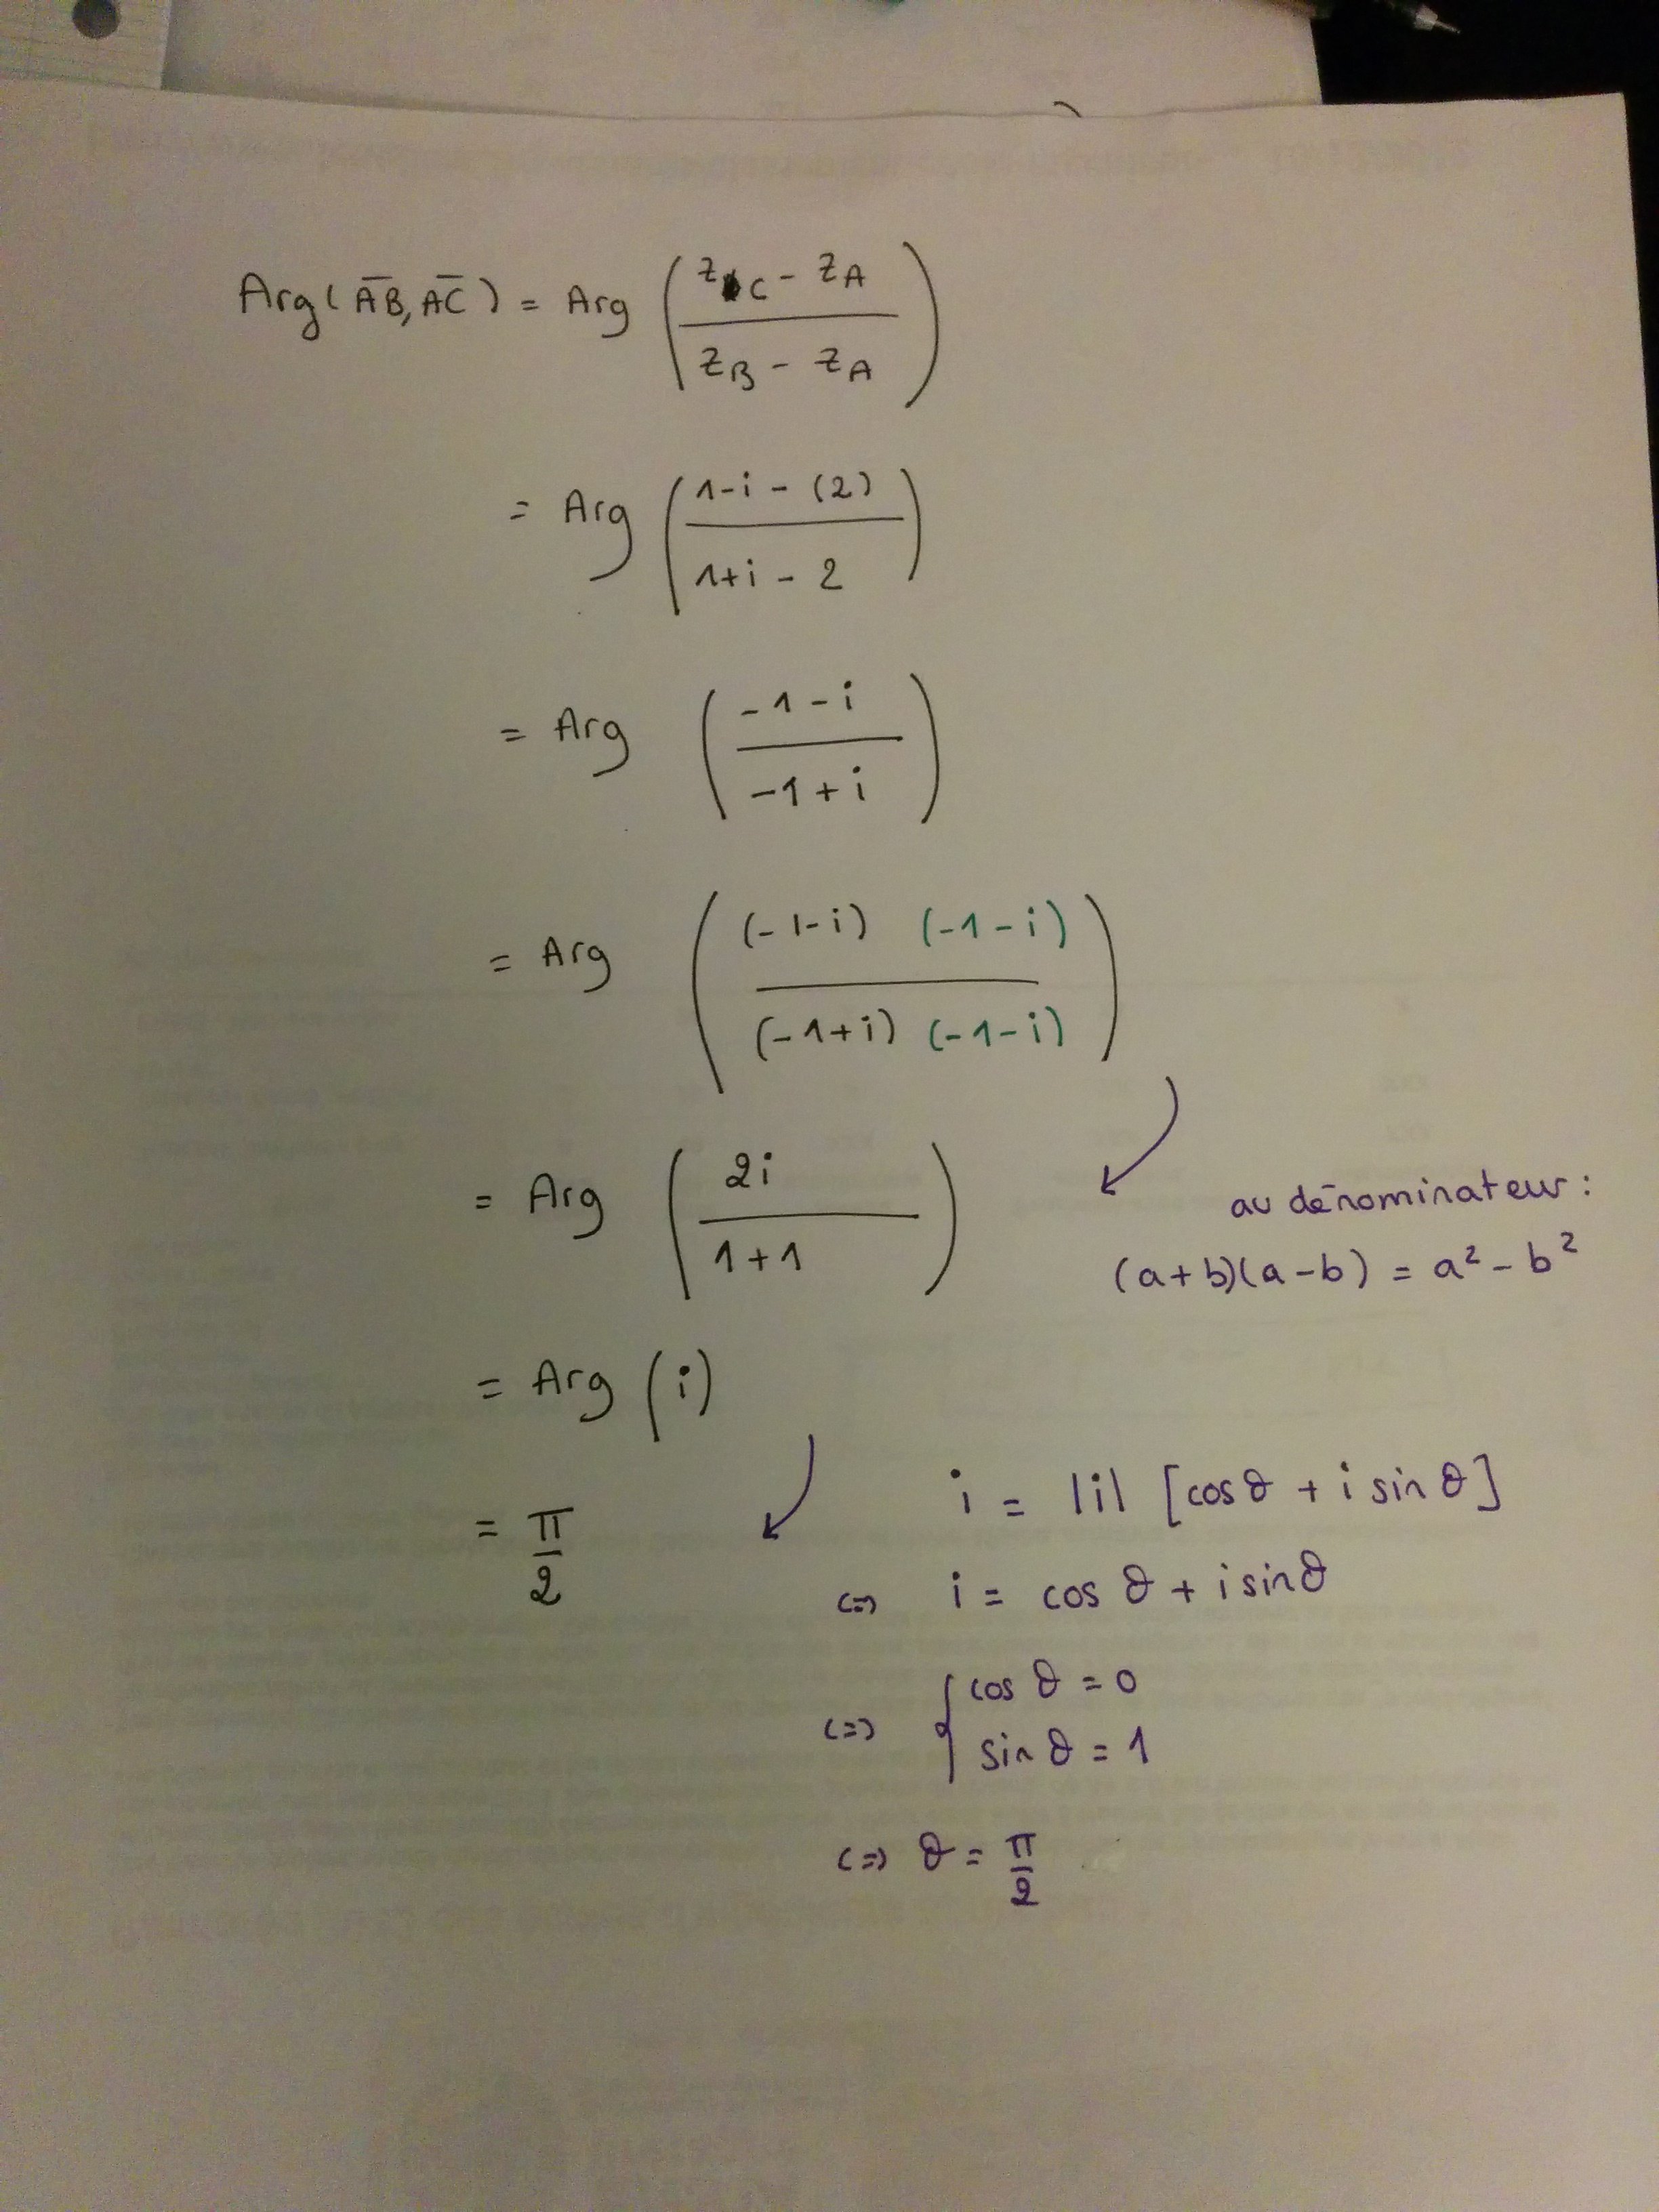 Arg(AB, AC) = Arg (zC - zA / zB - zA)
= Arg (1-i - (2) / 1+i - 2)
= Arg (-1-i / -1+i)
= Arg ((-1-i) (-1-i) / (-1+i) (-1-i))
= Arg (2i / 1+1)
au dénominateur :
(a+b)(a-b) = a² - b²
= Arg (i)
= π/2
i = |i| [cosθ + i sinθ]
(=) i = cos θ + i sinθ
(=) { cos θ = 0
sin θ = 1
(=) θ = π/2